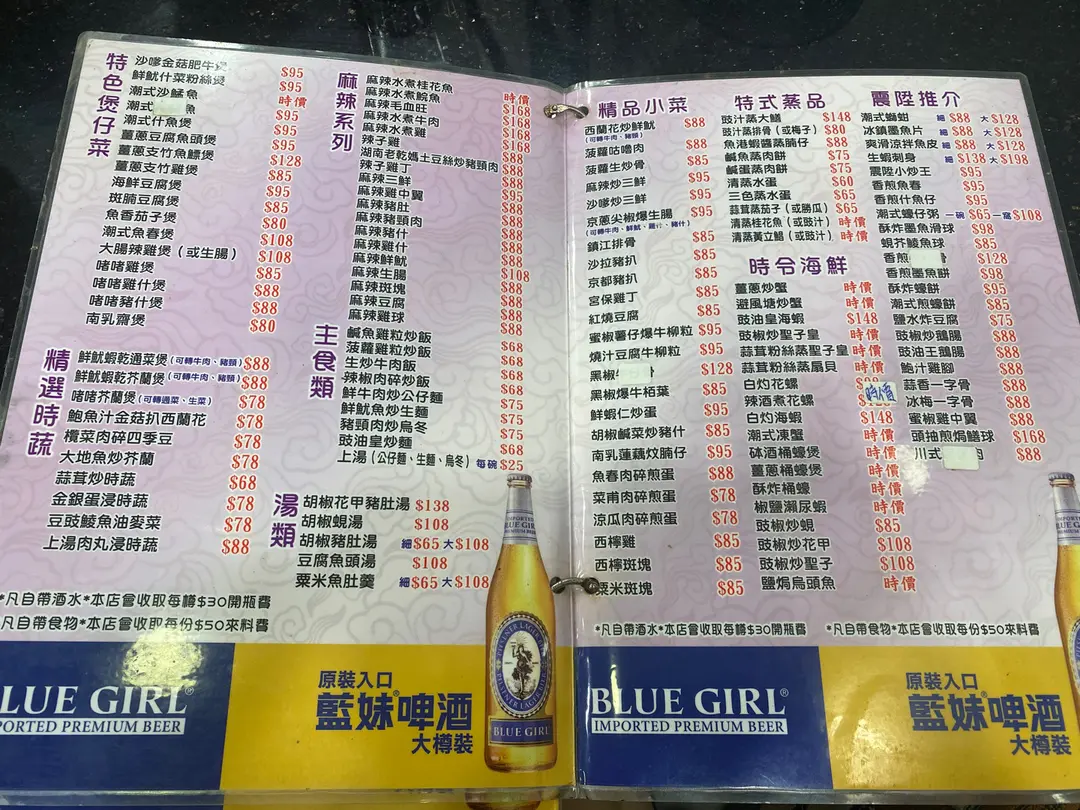 特色煲仔菜
沙嗲金菇肥牛煲 $95
鮮魷什菜粉絲煲 $95
潮式沙鯭魚 時價
潮式 魚 $95
潮式什魚煲 $95
薑蔥豆腐魚頭煲 $95
薑蔥支竹魚鰾煲 $128
薑蔥支竹魚煲 $85
海鮮豆腐煲 $95
斑腩豆腐煲 $85
魚香茄子煲 $80
潮式魚春煲 $108
大腸辣雞煲（或生腸） $108
啫啫雞煲 $85
啫啫雞什煲 $88
啫啫豬什煲 $88
南乳齋煲 $80
精選時蔬
鮮魷蝦乾通菜煲(可轉牛肉、豬頸) $88
鮮魷蝦乾芥蘭煲(可轉牛肉、豬頸) $88
啫啫芥蘭煲(可轉通菜、生菜) $78
鮑魚汁金菇扒西蘭花 $78
欖菜肉碎四季豆 $78
大地魚炒芥蘭 $78
蒜茸炒時蔬 $68
金銀蛋浸時蔬 $78
豆豉鯪魚油麥菜 $78
上湯肉丸浸時蔬 $88
麻辣系列
麻辣水煮桂花魚 時價
麻辣水煮鯇魚 $168
麻辣毛血旺 $168
麻辣水煮牛肉 $168
麻辣水煮雞 $168
辣子雞 $88
湖南老乾媽土豆絲炒豬頸肉 $88
辣子雞丁 $88
麻辣三鮮 $88
麻辣雞中翼 $95
麻辣豬肚 $88
麻辣豬頸肉 $88
麻辣豬什 $88
麻辣雞什 $88
麻辣鮮魷 $88
麻辣生腸 $108
麻辣斑塊 $88
麻辣豆腐 $88
麻辣雞球 $88
主食類
鹹魚雞粒炒飯 $68
菠蘿雞粒炒飯 $68
生炒牛肉飯 $68
辣椒肉碎炒飯 $68
鮮牛肉炒公仔麵 $68
鮮魷魚炒生麵 $75
豬頸肉炒烏冬 $75
豉油皇炒麵 $68
上湯（公仔麵、生麵、烏冬）每碗$25
湯類
胡椒花甲豬肚湯 $138
胡椒蜆湯 $108
胡椒豬肚湯 細$65 大$108
豆腐魚頭湯 $108
粟米魚肚羹 細$65 大$108
*凡自帶酒水*本店會收取每樽$30開瓶費
*凡自帶食物*本店會收取每份$50來料費
BLUE GIRL®
IMPORTED PREMIUM BEER
原裝入口
藍妹®啤酒
大樽裝
BLUE GIRL
精品小菜
西蘭花炒鮮魷 $88
(可轉牛肉、豬頸)
菠蘿咕嚕肉 $88
菠蘿生炒骨 $85
麻辣炒三鮮 $95
沙嗲炒三鮮 $95
京蔥尖椒爆生腸 $95
(可轉牛肉、鮮魷、雞什、豬什)
鎮江排骨 $85
沙拉豬扒 $85
京都豬扒 $85
宮保雞丁 $85
紅燒豆腐 $85
蜜椒薯仔爆牛柳粒 $95
燒汁豆腐牛柳粒 $95
黑椒 $128
黑椒爆牛栢葉 $85
鮮蝦仁炒蛋 $95
胡椒鹹菜炒豬什 $85
南乳蓮藕炆腩仔 $95
魚春肉碎煎蛋 $88
菜甫肉碎煎蛋 $78
涼瓜肉碎煎蛋 $78
西檸雞 $85
西檸斑塊 $85
粟米斑塊 $85
特式蒸品
豉汁蒸大鱔 $148
豉汁蒸排骨（或梅子） $80
魚港蝦醬蒸腩仔 $88
鹹魚蒸肉餅 $75
鹹蛋蒸肉餅 $75
清蒸水蛋 $60
三色蒸水蛋 $65
蒜茸蒸茄子（或勝瓜） $65
清蒸桂花魚（或豉汁） 時價
清蒸黃立鯧（或豉汁） 時價
時令海鮮
薑蔥炒蟹 時價
避風塘炒蟹 時價
豉油皇海蝦 $148
豉椒炒聖子皇 時價
蒜茸粉絲蒸聖子皇 時價
蒜茸粉絲蒸扇貝 時價
白灼花螺
辣酒煮花螺 時價
白灼海蝦 $148
潮式凍蟹 時價
砵酒桶蠔煲 時價
薑蔥桶蠔煲 時價
酥炸桶蠔 時價
椒鹽瀨尿蝦 時價
豉椒炒蜆 $85
豉椒炒花甲 $108
豉椒炒聖子 $108
鹽焗烏頭魚 時價
震陞推介
潮式螄蚶 細$88 大$128
冰鎮墨魚片 細$88 大$128
爽滑涼拌魚皮 細$88 大$128
生蝦刺身 細$138 大$198
震陞小炒王 $95
香煎魚春 $95
香煎什魚仔 $95
潮式蠔仔粥 一碗$65 一窩$108
酥炸墨魚滑球 $98
蜆芥鯪魚球 $85
香煎 $128
香煎墨魚餅 $98
酥炸蠔餅 $95
潮式煎蠔餅 $85
鹽水炸豆腐 $75
豉椒炒鵝腸 $88
豉油王鵝腸 $88
鮑汁雞腳 $88
蒜香一字骨 $88
冰梅一字骨 $88
蜜椒雞中翼 $88
頭抽煎焗鱔球 $168
川式 肉 $88
*凡自帶酒水*本店會收取每樽$30開瓶費 *凡自帶食物*本店會收取每份$50來料費
BLUE GIRL®
IMPORTED PREMIUM BEER
原裝入口
藍妹®啤酒
大樽裝